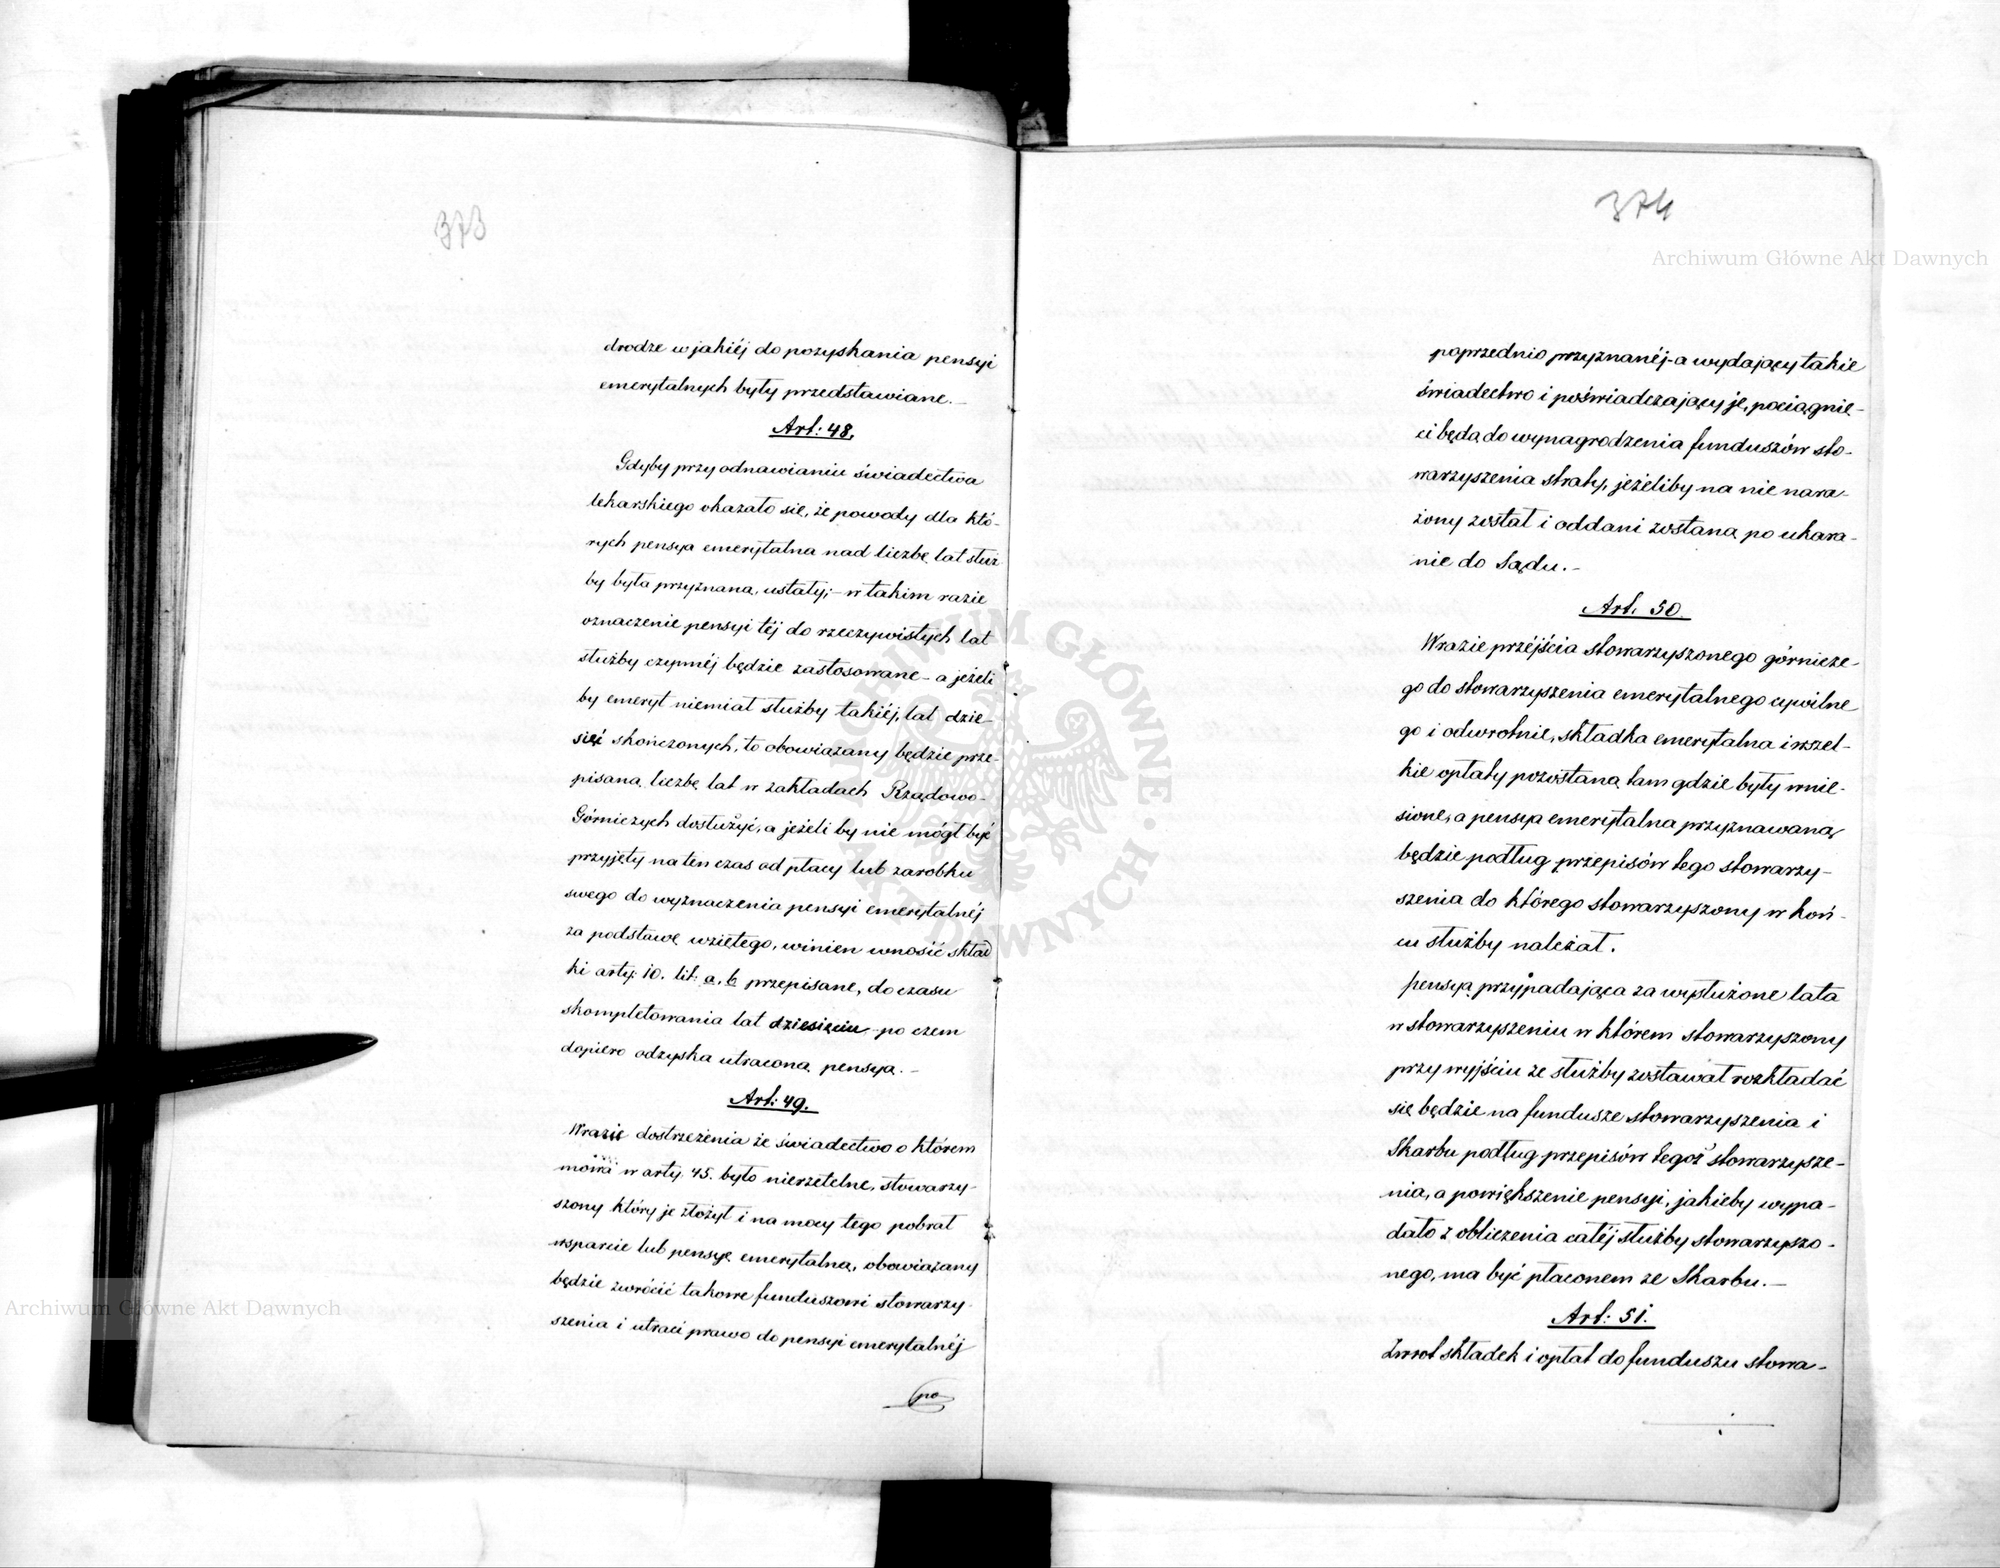 373
drodze w jakiéj do pozyskania pensyi
emerytalnych były przedstawiane.—
Art: 48.
Gdyby przy odnawianiu świadectwa
lekarskiego okazało się, że powody dla któ-
rych pensya emerytalna nad liczbę lat służ
by była przyznana, ustały;— w takim razie
oznaczenie pensyi téj do rzeczywistych lat
służby czynnéj będzie zastosowane— a jeżeli
by emeryt niemiał służby takiéj, lat dzie-
sięć skończonych, to obowiązany będzie prze-
pisaną liczbę lat w zakładach Rządowo-
Górniczych dosłużyć, a jeżeli by nie mógł być
przyjęty na ten czas od płacy lub zarobku
swego do wyznaczenia pensyi emerytalnéj
za podstawę wziętego, winien wnosić skład
ki arty: 10. lit: a, b przepisane, do czasu
skompletowania lat dziesięciu po czem
dopiero odzyska utraconą pensya.—
Art: 49.
Wrazie dostrzeżenia że świadectwo o którem
mowa w arty. 45. było nierzetelne, stowarzy-
szony który je złożył i na mocy tego pobrał
wsparcie lub pensyę emerytalną, obowiązany
będzie zwrócić takowe funduszowi stowarzy-
szenia i utraci prawo do pensyi emerytalnéj
po
374
Archiwum Główne Akt Dawnych
poprzednio przyznanéj— a wydający takie
świadectwo i poświadczający je, pociągnię-
ci będą do wynagrodzenia funduszów sto-
warzyszenia straty, jeżeliby na nie nara-
żony został i oddani zostaną po ukara-
nie do Sądu.—
Art. 50.
Wrazie przéjścia stowarzyszonego górnicze-
go do stowarzyszenia emerytalnego cywilne
go i odwrotnie, składka emerytalna i wszel-
kie opłaty pozostaną tam gdzie były wnie-
sione, a pensya emerytalna przyznawaną
będzie podług przepisów tego stowarzy-
szenia do którego stowarzyszony w koń-
cu służby należał.
pensya przypadająca za wysłużone lata
w stowarzyszeniu w którem stowarzyszony
przy wyjściu ze służby zostawał rozkładać
się będzie na fundusze stowarzyszenia i
Skarbu podług przepisów tegoż stowarzysze-
nia, a powiększenie pensyi, jakieby wypa-
dało z obliczenia całéj służby stowarzyszo-
nego, ma być płaconem ze Skarbu.—
Art: 51.
Zwrot składek i opłat do funduszu stowa-
ARCHIWUM GŁÓWNE AKT DAWNYCH
Archiwum Główne Akt Dawnych